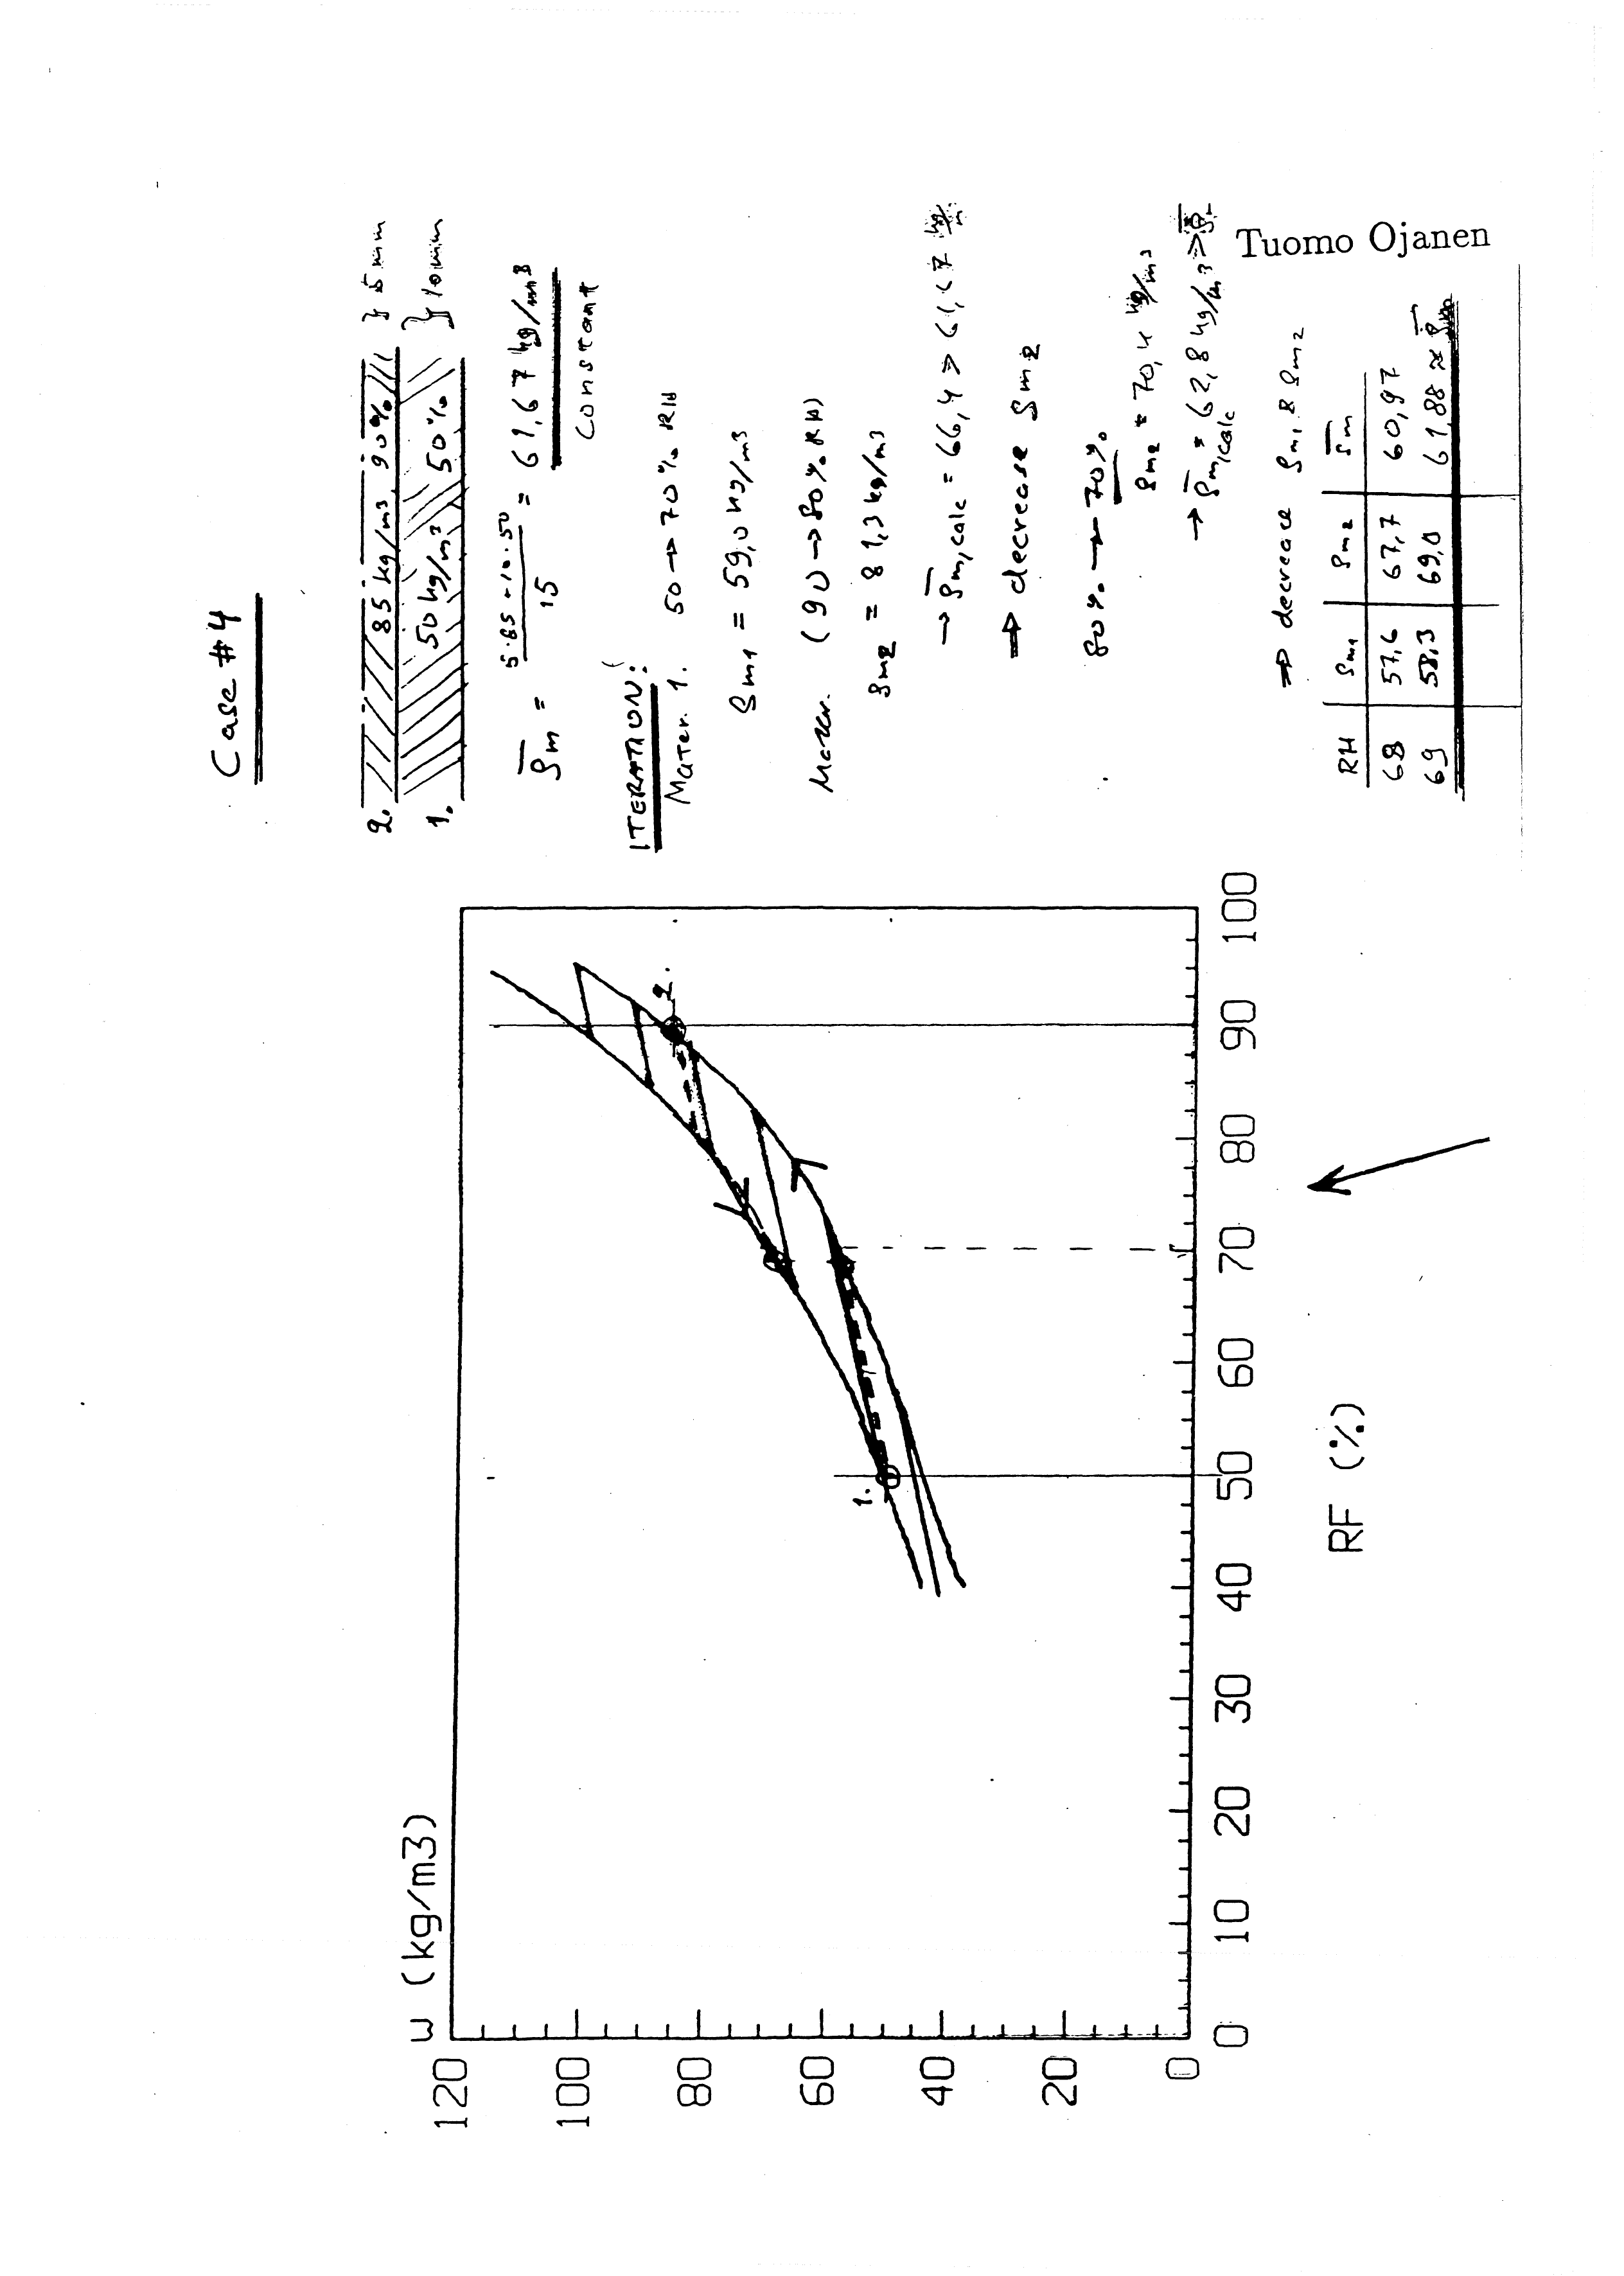 Case #4
2. 85 kg/m3 90% } 5 mm
1. 50 kg/m3 50% } 10 mm
ρ̄m = 5·85 + 10·50 / 15 = 61,67 kg/m3
constant
ITERATION:
Mater. 1. 50 → 70% RH
ρm1 = 59,0 kg/m3
Mater. (90 → 80% RH)
ρm2 = 81,3 kg/m3
→ ρ̄m,calc = 66,4 > 61,67 kg/m
⇒ decrease ρm2
80% → 70%
ρm2 = 70,4 kg/m3
→ ρ̄m,calc = 62,8 kg/m3 > ρ̄m
⇒ decrease ρm1 & ρm2
RH ρm1 ρm2 ρ̄m
68 57,6 67,7 60,97
69 58,3 69,0 61,88 ≈ ρ̄m
Tuomo Ojanen
w (kg/m3)
120
100
80
60
40
20
0
0 10 20 30 40 50 60 70 80 90 100
RF (%)
1.
2.